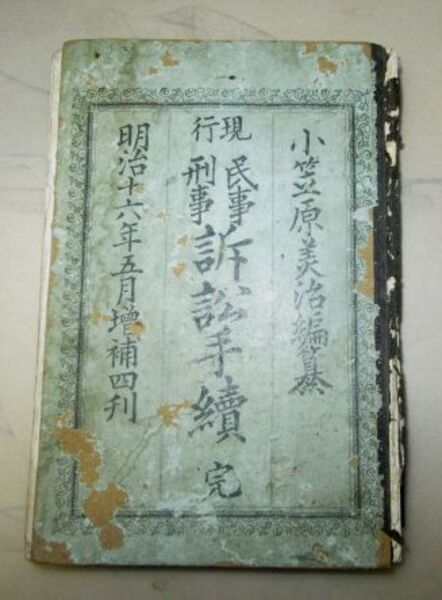 小笠原美治編纂
現行
民事
刑事
訴訟手續 完
明治十六年五月増補四刊